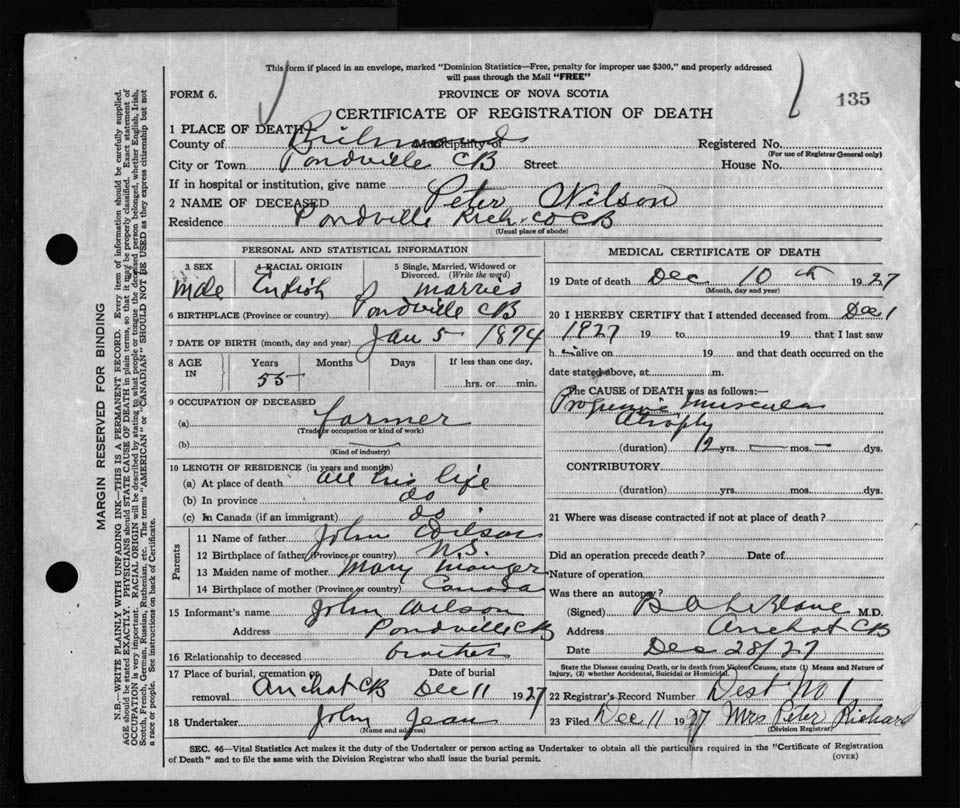 This form if placed in an envelope, marked "Dominion Statistics—Free, penalty for improper use $300," and properly addressed
will pass through the Mail "FREE"
FORM 6.
PROVINCE OF NOVA SCOTIA
135
CERTIFICATE OF REGISTRATION OF DEATH
1 PLACE OF DEATH
County of Richmond Municipality of Registered No.
(For use of Registrar General only)
City or Town Pondville CB Street House No.
If in hospital or institution, give name
2 NAME OF DECEASED Peter Wilson
Residence Pondville Rich. co CB
(Usual place of abode)
PERSONAL AND STATISTICAL INFORMATION
3 SEX
Male
4 RACIAL ORIGIN
English
5 Single, Married, Widowed or Divorced. (Write the word)
married
6 BIRTHPLACE (Province or country) Pondville CB
7 DATE OF BIRTH (month, day and year) Jan 5 1874
8 AGE IN
Years Months Days If less than one day,
55 hrs. or min.
9 OCCUPATION OF DECEASED
(a) farmer
(Trade or occupation or kind of work)
(b) —
(Kind of industry)
10 LENGTH OF RESIDENCE (in years and months)
(a) At place of death all his life
(b) In province do
(c) In Canada (if an immigrant) do
Parents
11 Name of father John Wilson
12 Birthplace of father (Province or country) N.S.
13 Maiden name of mother Mary
14 Birthplace of mother (Province or country) Canada
15 Informant's name John Wilson
Address Pondville CB
16 Relationship to deceased brother
17 Place of burial, cremation or removal Arichat CB
Date of burial Dec 11 1927
18 Undertaker John Jean
(Name and address)
MEDICAL CERTIFICATE OF DEATH
19 Date of death Dec 10th 1927
(Month, day and year)
20 I HEREBY CERTIFY that I attended deceased from Dec 1
1927 19 to 19 that I last saw
h alive on 19 and that death occurred on the
date stated above, at m.
The CAUSE OF DEATH was as follows:—
Progressive muscular
Atrophy
(duration) 12 yrs. — mos — dys.
CONTRIBUTORY.
(duration) yrs. mos. dys.
21 Where was disease contracted if not at place of death?
Did an operation precede death? Date of
Nature of operation
Was there an autopsy?
(Signed) B A LeBlanc M.D.
Address Arichat CB
Date Dec 28/27
State the Disease causing Death, or in death from Violent Causes, state (1) Means and Nature of
Injury, (2) whether Accidental, Suicidal or Homicidal.
22 Registrar's Record Number Dest No 1
23 Filed Dec 11 1927 Mrs Peter Richard
(Division Registrar)
SEC. 46—Vital Statistics Act makes it the duty of the Undertaker or person acting as Undertaker to obtain all the particulars required in the "Certificate of Registration
of Death" and to file the same with the Division Registrar who shall issue the burial permit.
(OVER)
MARGIN RESERVED FOR BINDING
N.B.—WRITE PLAINLY WITH UNFADING INK—THIS IS A PERMANENT RECORD. Every item of information should be carefully supplied.
AGE should be stated EXACTLY. PHYSICIANS should STATE CAUSE OF DEATH in plain terms, so that it may be properly classified. Exact statement of
OCCUPATION is very important. RACIAL ORIGIN will be described by stating to what people or tongue the deceased person belonged, whether English, Irish,
Scotch, French, German, Russian, Ruthenian, etc. The terms "AMERICAN" or "CANADIAN" SHOULD NOT BE USED as they express citizenship but not
a race or people. See instructions on back of Certificate.